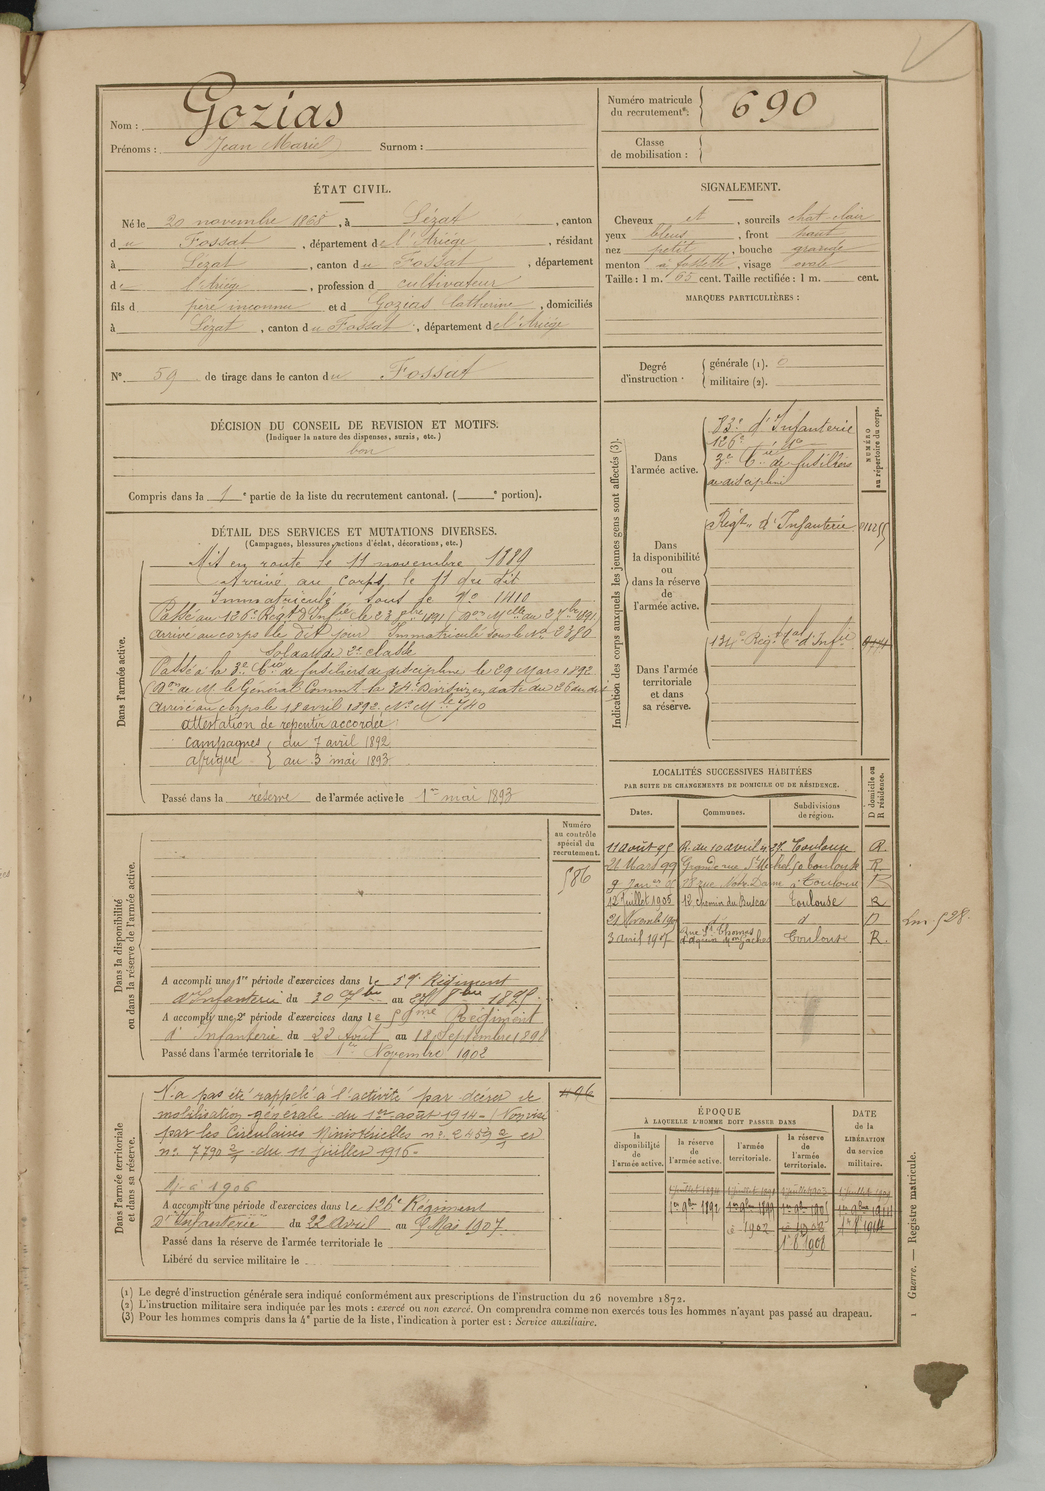 Nom : Gozias
Prénoms : Jean Marie Surnom :
Numéro matricule du recrutement : 690
Classe de mobilisation :
ÉTAT CIVIL.
Né le 20 novembre 1868, à Lézat, canton
du Fossat, département de l'Ariège, résidant
à Lézat, canton du Fossat, département
de l'Ariège, profession de cultivateur
fils d père inconnu et d Gozias Catherine, domiciliés
à Lézat, canton du Fossat, département de l'Ariège
N° 59 de tirage dans le canton du Fossat
SIGNALEMENT.
Cheveux et, sourcils chat-clair
yeux bleus, front haut
nez petit, bouche grande
menton à fossette, visage ovale
Taille : 1 m. 65 cent. Taille rectifiée : 1 m. cent.
MARQUES PARTICULIÈRES :
Degré d'instruction
générale (1). 0
militaire (2).
DÉCISION DU CONSEIL DE REVISION ET MOTIFS.
(Indiquer la nature des dispenses, sursis, etc.)
bon
Compris dans la 1e partie de la liste du recrutement cantonal. ( e portion).
DÉTAIL DES SERVICES ET MUTATIONS DIVERSES.
(Campagnes, blessures, actions d'éclat, décorations, etc.)
Dans l'armée active.
Mis en route le 11 novembre 1889
Arrivé au corps le 11 du dit
Immatriculé sous le No 1410
Passé au 126e Régt d'Infie le 23 1891 (Don Mlle du 27 1891
arrivé au corps le dit jour Immatriculé sous le No 3380
Soldat de 2e classe
Passé à la 3e Cie de fusiliers de discipline le 29 Mars 1892
(Don de M. le Général Commt la Division en date du 26 du dit
arrivé au corps le 18 avril 1892. No Mle 740
attestation de repentir accordée
campagnes du 7 avril 1892
afrique au 3 mai 1893
Passé dans la réserve de l'armée active le 1er mai 1893
Indication des corps auxquels les jeunes gens sont affectés (3).
NUMÉRO au répertoire du corps.
Dans l'armée active.
83e d'Infanterie
126e
3e Cie de fusiliers
de discipline
Dans la disponibilité ou dans la réserve de l'armée active.
Régt d'Infanterie
Dans l'armée territoriale et dans sa réserve.
134e Régt d'Infie
LOCALITÉS SUCCESSIVES HABITÉES
PAR SUITE DE CHANGEMENTS DE DOMICILE OU DE RÉSIDENCE.
Dates. Communes. Subdivisions de région. D domicile ou R résidence.
11 août 95 R. du 10 avril 27 Toulouse R.
21 Mars 99 Grande rue St Michel 50 Toulouse R.
9 78 rue Notre Dame à Toulouse R
12 juillet 1905 12 chemin du Busca Toulouse R
21 d° d D
3 avril 1907 Rue St Thomas d'Aquin Toulouse R.
Dans la disponibilité ou dans la réserve de l'armée active.
Numéro au contrôle spécial du recrutement.
586
A accompli une 1re période d'exercices dans le 59e Régiment
d'Infanterie du 30 7bre au 27 8bre 1895
A accompli une 2e période d'exercices dans le 59me Régiment
d'Infanterie du 22 Août au 18 Septembre 1898
Passé dans l'armée territoriale le 1er Novembre 1902
Dans l'armée territoriale et dans sa réserve.
N'a pas été rappelé à l'activité par décret de
mobilisation générale du 1er août 1914 - (Non visé
par les Circulaires Ministérielles no 2459 et
no 7790 du 11 juillet 1916 -
A accompli une période d'exercices dans le 126e Régiment
d'Infanterie du 22 Avril au 9 Mai 1907.
Passé dans la réserve de l'armée territoriale le
Libéré du service militaire le
ÉPOQUE
À LAQUELLE L'HOMME DOIT PASSER DANS
la disponibilité de l'armée active.
la réserve de l'armée active.
l'armée territoriale.
la réserve de l'armée territoriale.
DATE de la LIBÉRATION du service militaire.
1er 9bre 1892 1er 9bre 1899 1er 9bre 1905 1er 9bre 1911
1902 1908
1908
Guerre. — Registre matricule.
(1) Le degré d'instruction générale sera indiqué conformément aux prescriptions de l'instruction du 26 novembre 1872.
(2) L'instruction militaire sera indiquée par les mots : exercé ou non exercé. On comprendra comme non exercés tous les hommes n'ayant pas passé au drapeau.
(3) Pour les hommes compris dans la 4e partie de la liste, l'indication à porter est : Service auxiliaire.